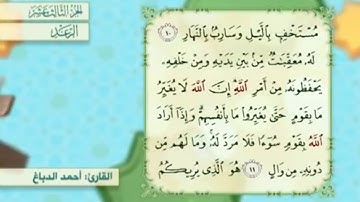 الجزء الثالث عشر
الرعد
مُسْتَخْفٍۭ بِٱلَّيْلِ وَسَارِبٌۢ بِٱلنَّهَارِ ١٠
لَهُۥ مُعَقِّبَٰتٌ مِّنۢ بَيْنِ يَدَيْهِ وَمِنْ خَلْفِهِۦ
يَحْفَظُونَهُۥ مِنْ أَمْرِ ٱللَّهِ ۗ إِنَّ ٱللَّهَ لَا يُغَيِّرُ
مَا بِقَوْمٍ حَتَّىٰ يُغَيِّرُوا۟ مَا بِأَنفُسِهِمْ ۗ وَإِذَآ أَرَادَ
ٱللَّهُ بِقَوْمٍ سُوٓءًا فَلَا مَرَدَّ لَهُۥ ۚ وَمَا لَهُم مِّن
دُونِهِۦ مِن وَالٍ ١١ هُوَ ٱلَّذِى يُرِيكُمُ
القارئ: أحمد الدباغ